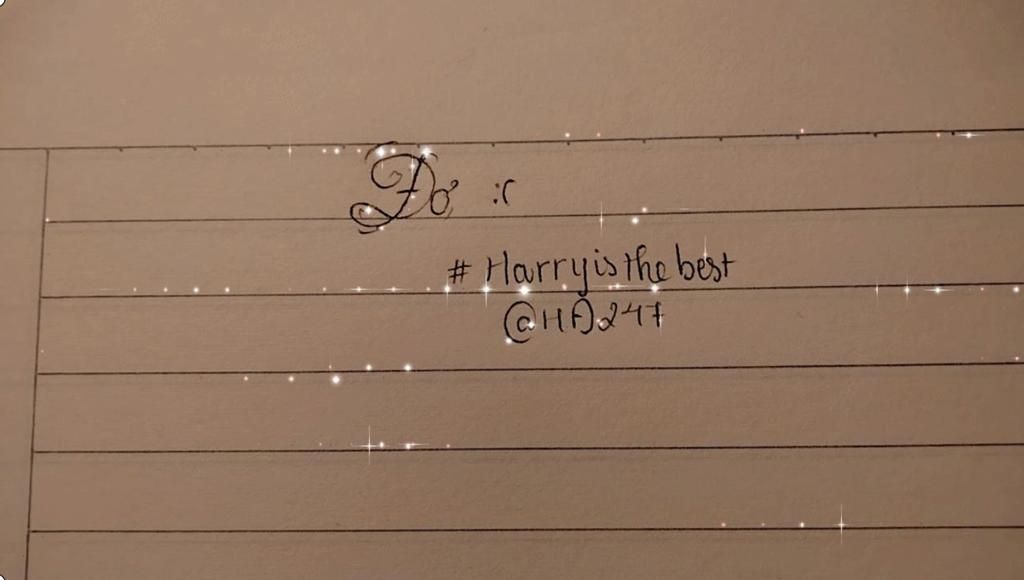 Đơ :(
# Harry is the best
@HA247